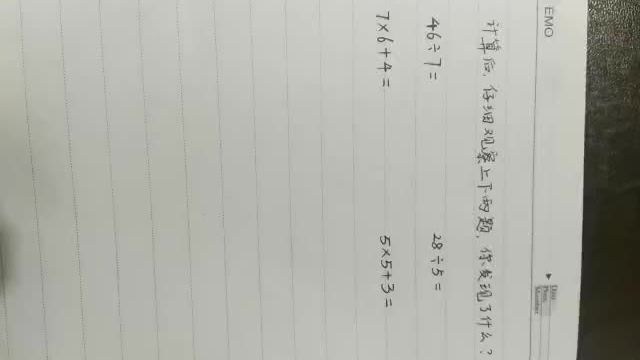 EMO
计算后,仔细观察上下两题,你发现了什么?
46÷7= 28÷5=
7×6+4= 5×5+3=